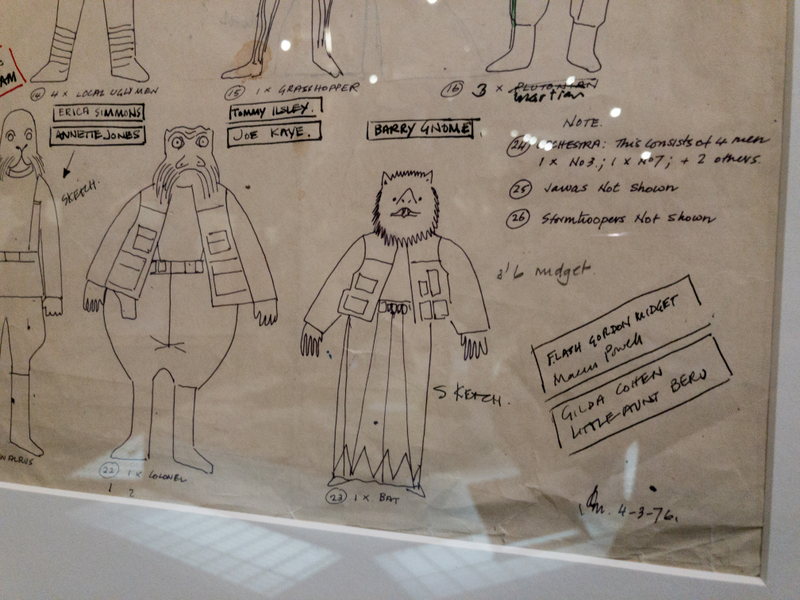 AM
14 4 x LOCAL UGLY MEN
15 1 x GRASSHOPPER
16 3 x PLUTONIAN
Martian
ERICA SIMMONS
ANNETTE JONES
TOMMY ILSLEY.
JOE KAYE.
BARRY GNOME
SKETCH.
NOTE.
24 ORCHESTRA: This consists of 4 men
1 x No3.; 1 x No7; + 2 others.
25 Jawas Not Shown
26 Stormtroopers Not Shown
3'6 midget.
FLASH GORDON MIDGET
Powell
GILDA COHEN
LITTLE AUNT BERU
SKETCH.
WALRUS
22 1 x COLONEL
1 2
23 1 x BAT
4-3-76.